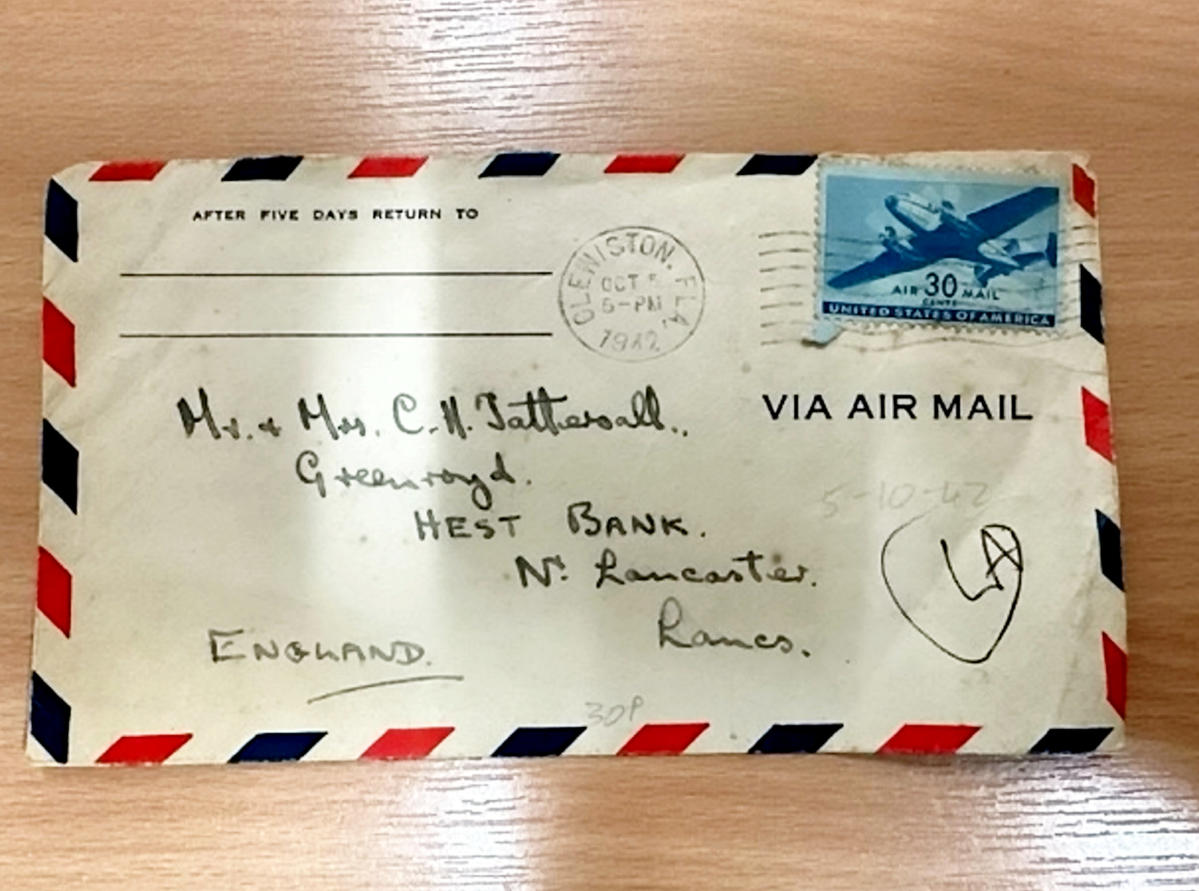 AFTER FIVE DAYS RETURN TO
CLEWISTON, FLA.
OCT 5
5-PM
1942
AIR 30 MAIL
CENTS
UNITED STATES OF AMERICA
VIA AIR MAIL
Mr. & Mrs. C. H. Tattersall.,
Greenroyd.
HEST BANK.
Nr. Lancaster.
Lancs.
ENGLAND.
5-10-42
LA
30P